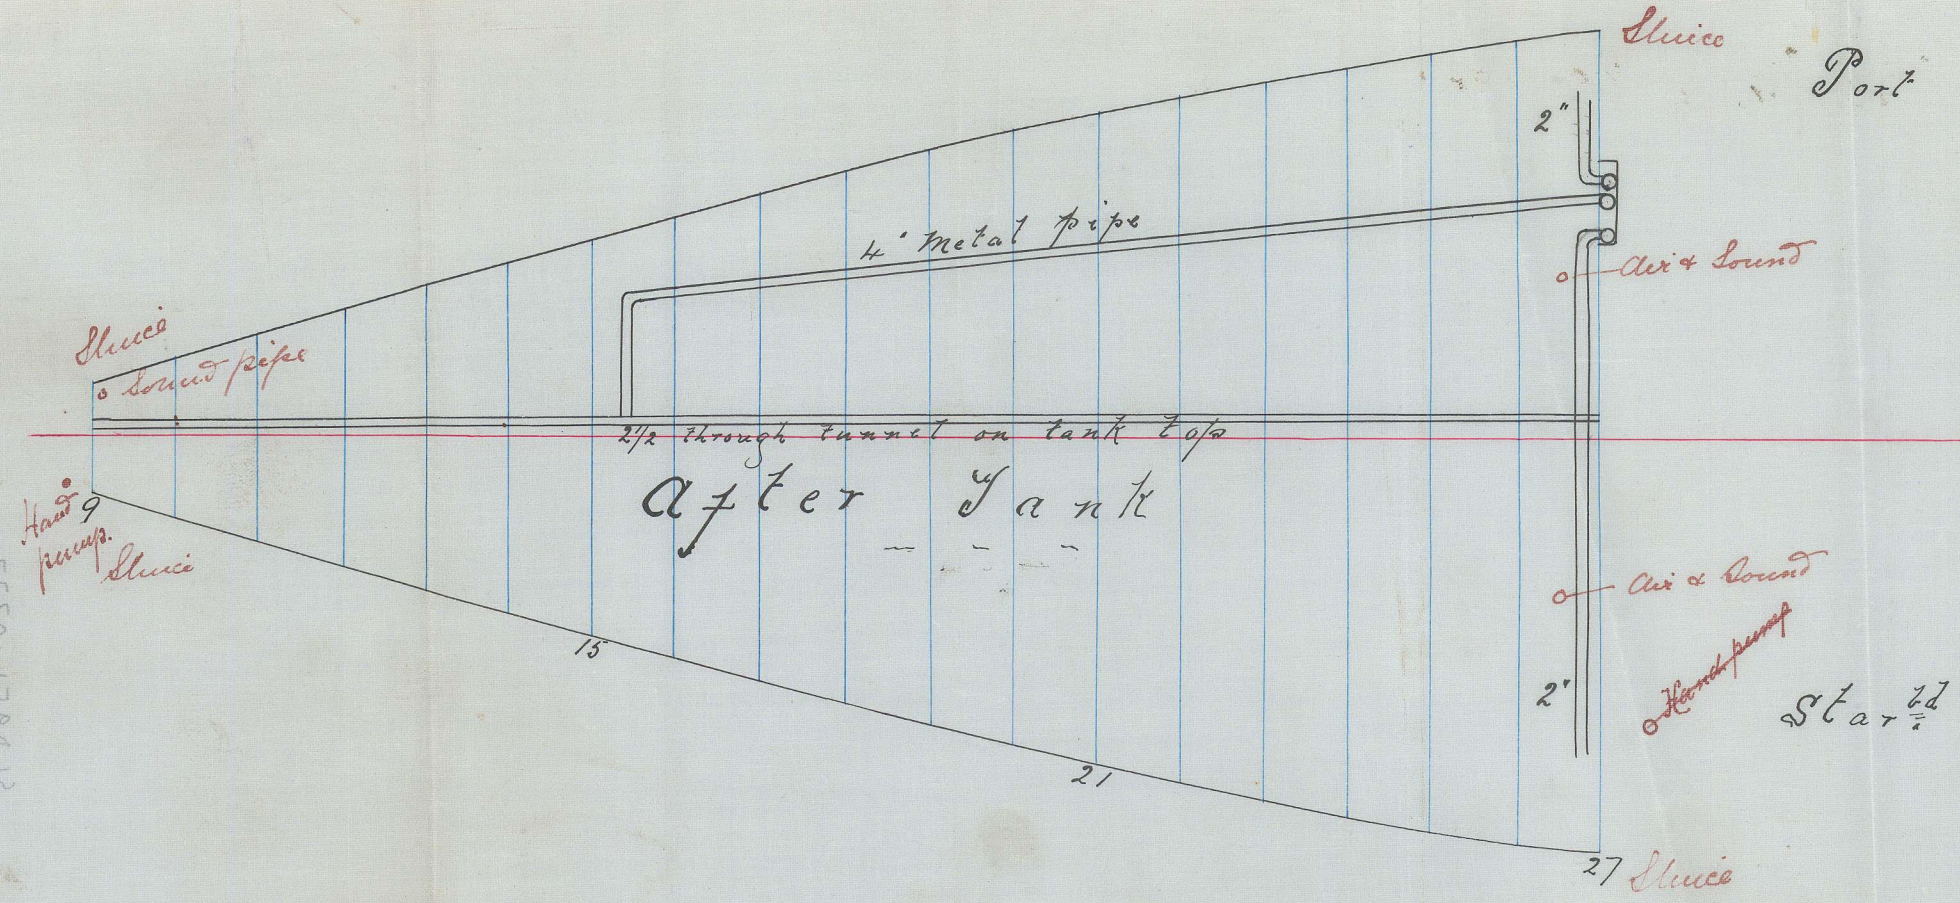 Sluice
Port
2"
4" metal pipe
Air & Sound
Sluice
Sound pipe
2½ through tunnel on tank top
After Tank
Hand pump.
9
Sluice
Air & Sound
15
Hand pump
2"
Star bd
21
27
Sluice